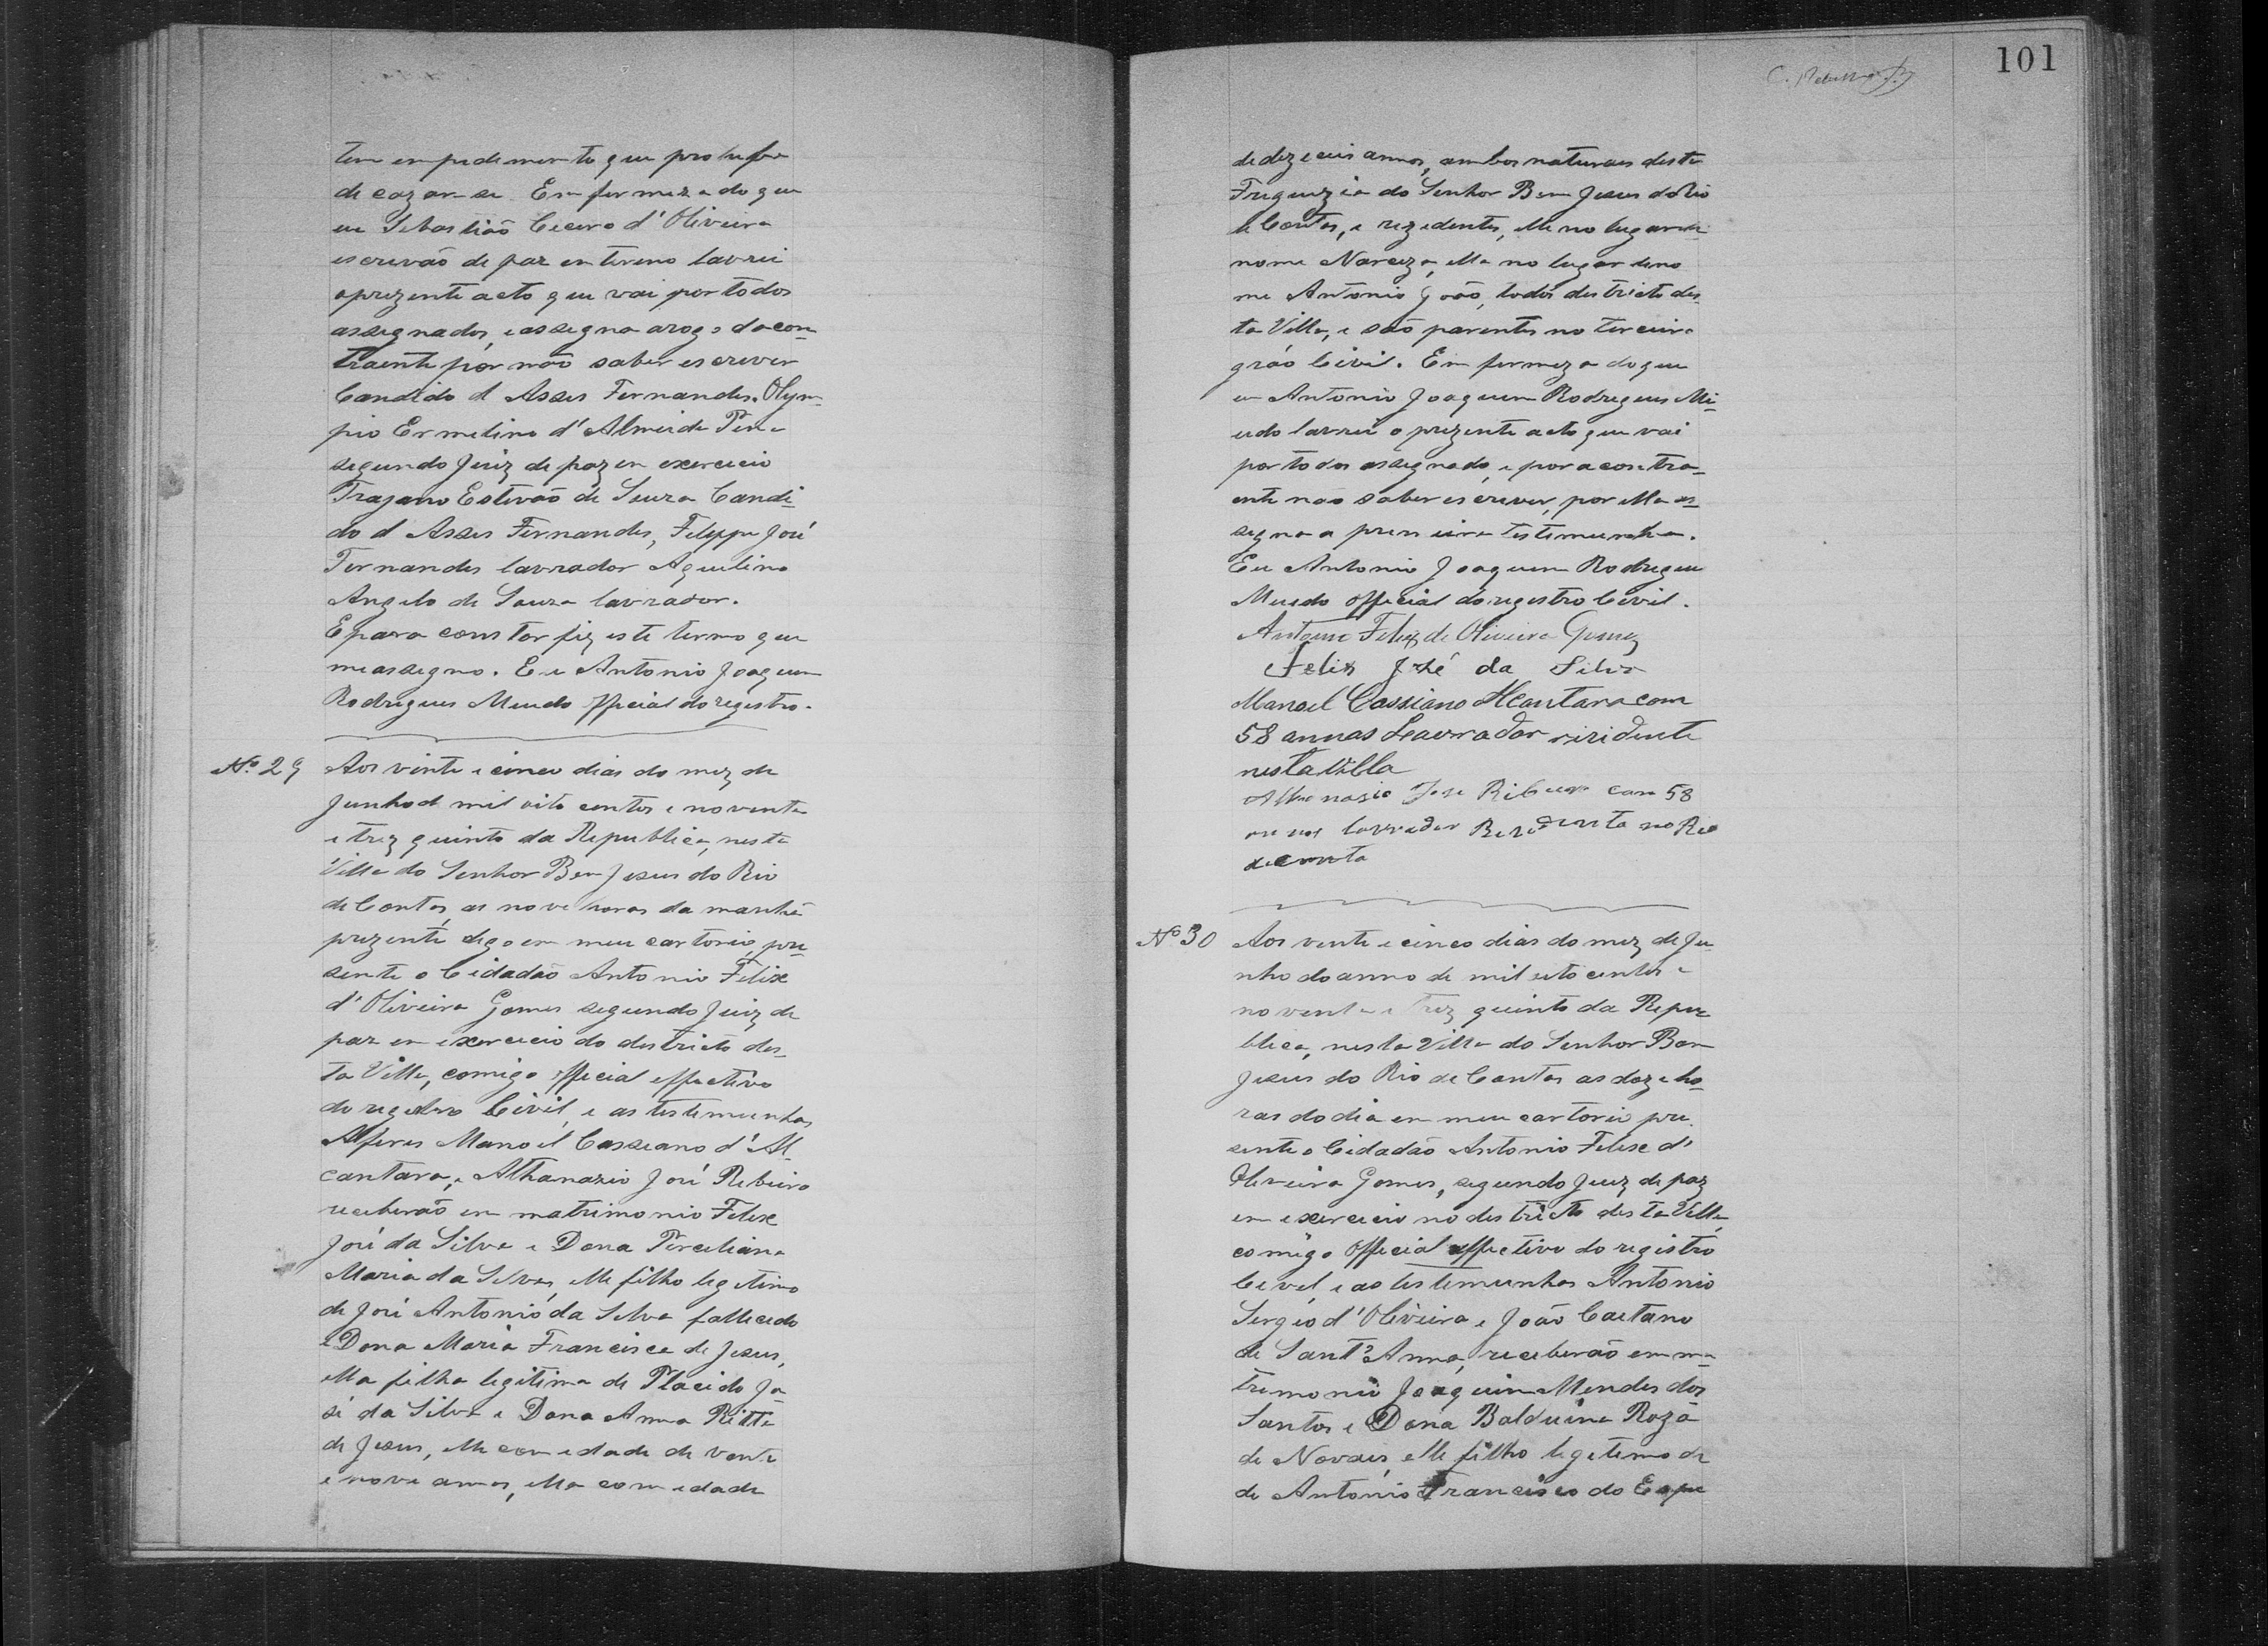 tem empedemento que prohiba
de cazar-se. Em fermeza do que
eu Sebastião Cicero d'Oliveira
escrevão de paz enterino lavrei
o prezente acto que vai por todos
assegnados, e assegna arogo da con-
traente por não saber escrever
Candido d Asses Fernandes. Olym-
pio Ermelino d'Almeida
segundo Juiz de paz em exercicio
Trajano Estevão de Souza Candi-
do d Asses Fernandes, Felippe José
Fernandes lavrador Aquilino
Angelo de Souza lavrador.
E para constar fiz este termo que
me assegno. Eu Antonio Joaquim
Rodrigues Meudo Official do registro.
Nº 29 Aos vinte e cinco dias do mez de
Junho de mil oito centos e noventa
e trez quinto da Republica, nesta
Villa do Senhor Bom Jesus do Rio
de Contas, as nove horas da manhã
prezente digo em meu cartorio, pre-
sente o Cidadão Antonio Felix
d'Oliveira Gomes segundo Juiz de
paz em exercicio do destricto des-
ta Villa, comigo Official effectivo
do registro Civil, e as testemunhas
Alferes Manoel Casseano d'Al
cantara, e Athanazio José Ribeiro
receberão em matrimonio Felix
José da Silva e Dona Perciliana
Maria da Silva, elle filho legetimo
de José Antonio da Silva fallecido
e Dona Maria Francisca de Jesus,
ella filha legitima de Placido Jo
sé da Silva e Dona Anna Ritta
de Jesus, elle com edade de vente
e nove annos, ella com edade
101
de dezeceis annos, ambos naturaes desta
Freguezia do Senhor Bom Jesus do Rio
de Contas, e rezedentes, elle no lugar de
nome Narciza, ella no lugar deno
me Antonio João, todos destricto des-
ta Villa, e são parentes no terceiro
gráo Civil. Em fermeza do que
eu Antonio Joaquim Rodrigues Me-
udo lavrei o prezente acto que vai
por todos assegnado, e por a contra-
ente não saber escrever, por ella as-
segna a premeira testemunha.
Eu Antonio Joaquim Rodrigues
Meudo Official do registro Civil.
Antonio Felix de Oliveira Gomes
Felix José da Silva
Manoel Cassiano Alcantara com
58 annos Leavrador risidente
nesta Villa
Athanasio Jose Ribeiro com 58
annos lavrador Rezidente no Rio
de conta
Nº 30 Aos vente e cinco dias do mez de Ju-
nho do anno de mil oito centos e
noventa e trez quinto da Repu
blica, nesta Villa do Senhor Bom
Jesus do Rio de Contas as doze ho-
ras do dia em meu cartorio pre-
sente o Cidadão Antonio Felix d'
Oliveira Gomes, segundo Juiz de paz
em exercicio no destricto desta Villa,
comigo Official effectivo do registro
Civel, e as testemunhas Antonio
Sergio d'Oliveira e João Caetano
de Sant'Anna, receberão em ma
tremonio Joaquim Mendes dos
Santos e Dona Balduina Roza
de Novaes, elle filho legetemo de
de Antonio Francisco do Espe